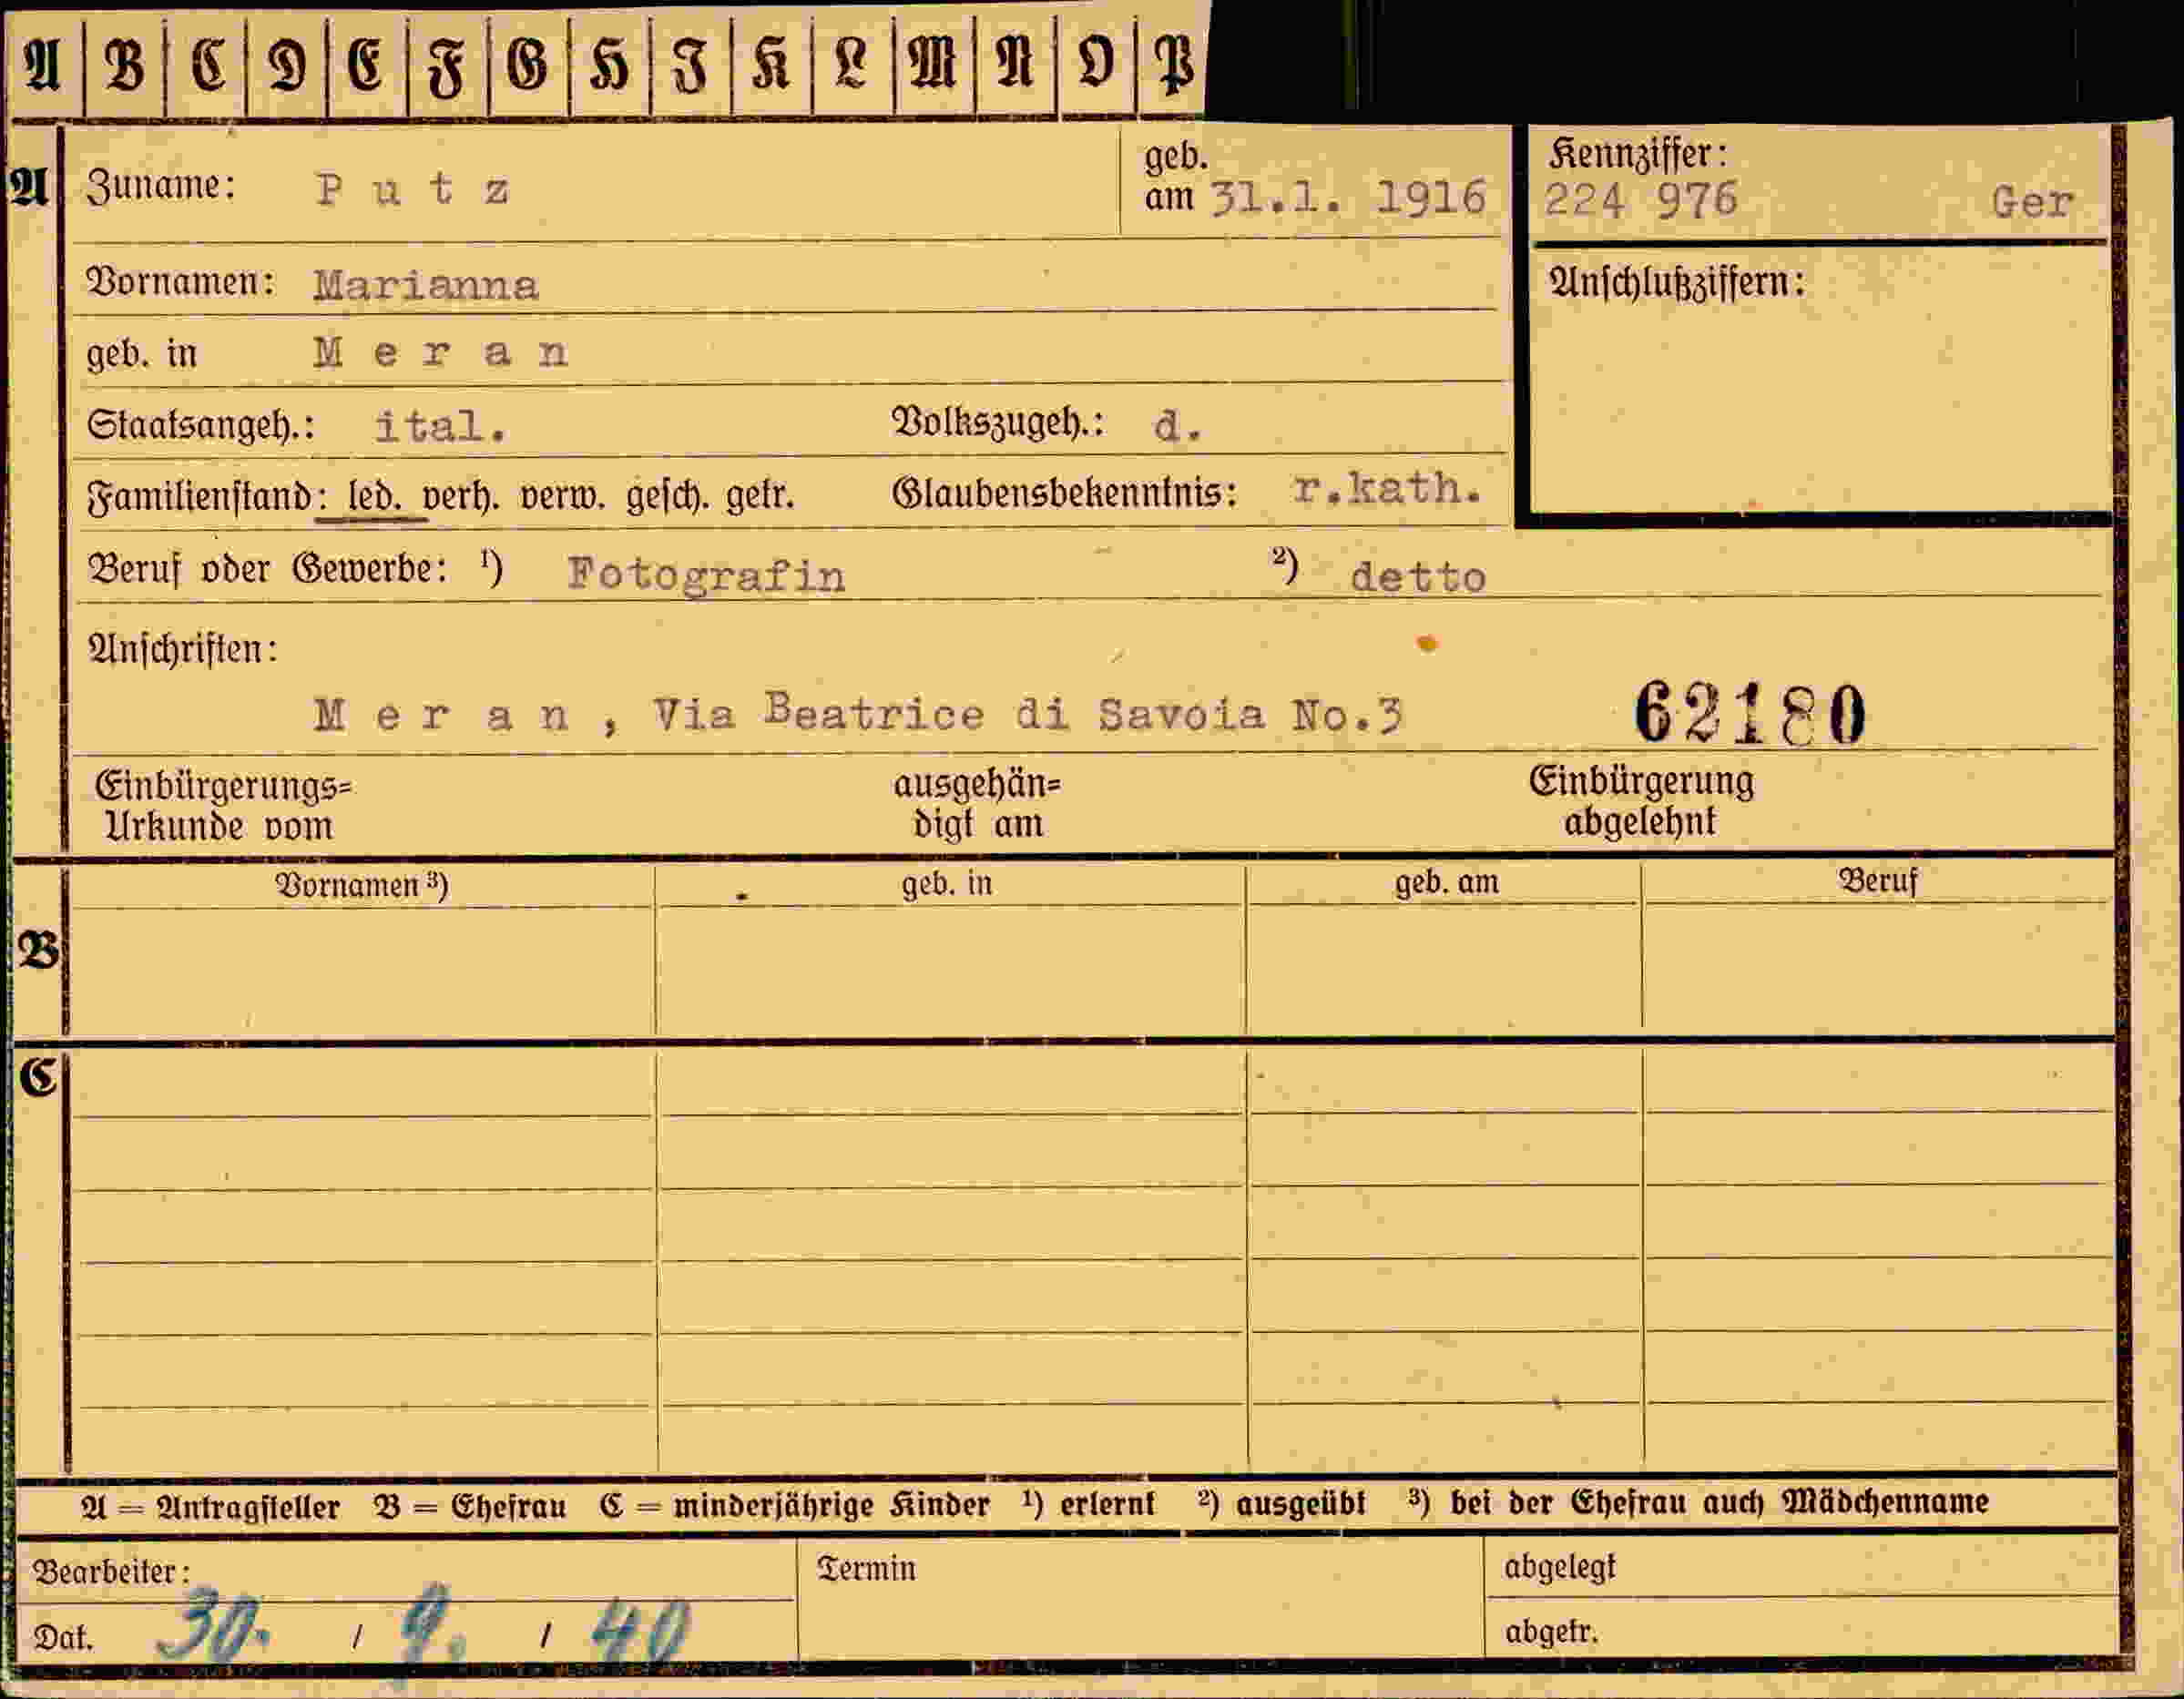 A B C D E F G H J K L M N O P
A Zuname: Putz geb. am 31.1. 1916 Kennziffer: 224 976 Ger
Vornamen: Marianna Anschlußziffern:
geb. in Meran
Staatsangeh.: ital. Volkszugeh.: d.
Familienstand: led. verh. verw. gesch. getr. Glaubensbekenntnis: r.kath.
Beruf oder Gewerbe: ¹) Fotografin ²) detto
Anschriften:
Meran, Via Beatrice di Savoia No.3 62180
Einbürgerungs= ausgehän= Einbürgerung
Urkunde vom digt am abgelehnt
Vornamen ³) geb. in geb. am Beruf
B
C
A = Antragsteller B = Ehefrau C = minderjährige Kinder ¹) erlernt ²) ausgeübt ³) bei der Ehefrau auch Mädchenname
Bearbeiter: Termin abgelegt
Dat. 30. / 9. / 40 abgetr.